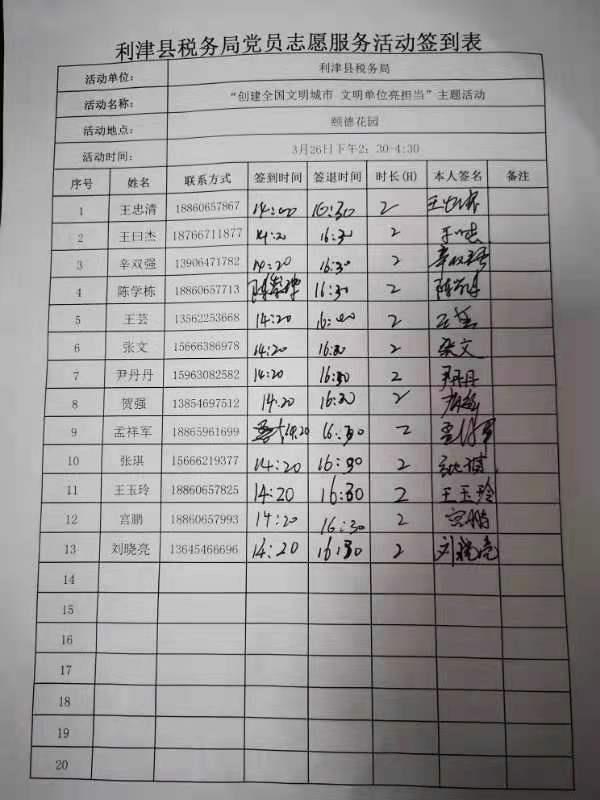 利津县税务局党员志愿服务活动签到表
活动单位： 利津县税务局
活动名称： “创建全国文明城市 文明单位亮担当”主题活动
活动地点： 颐德花园
活动时间： 3月26日下午2：30-4:30
序号 姓名 联系方式 签到时间 签退时间 时长(H) 本人签名 备注
1 王忠清 18860657867 14:00 16:30 2 王忠清
2 王曰杰 18766711877 14:20 16:30 2
3 辛双强 13906471782 14:20 16:30 2 辛双强
4 陈学栋 18860657713 16:30 2
5 王芸 13562253668 14:20 16:00 2 王芸
6 张文 15666386978 14:20 16:30 2 张文
7 尹丹丹 15963082582 14:20 16:30 2 尹丹丹
8 贺强 13854697512 14:20 16:30 2 贺强
9 孟祥军 18865961699 14:20 16:30 2 孟祥军
10 张琪 15666219377 14:20 16:30 2 张琪
11 王玉玲 18860657825 14:20 16:30 2 王玉玲
12 宫鹏 18860657993 14:20 16:30 2 宫鹏
13 刘晓亮 13645466696 14:20 16:30 2 刘晓亮
14
15
16
17
18
19
20